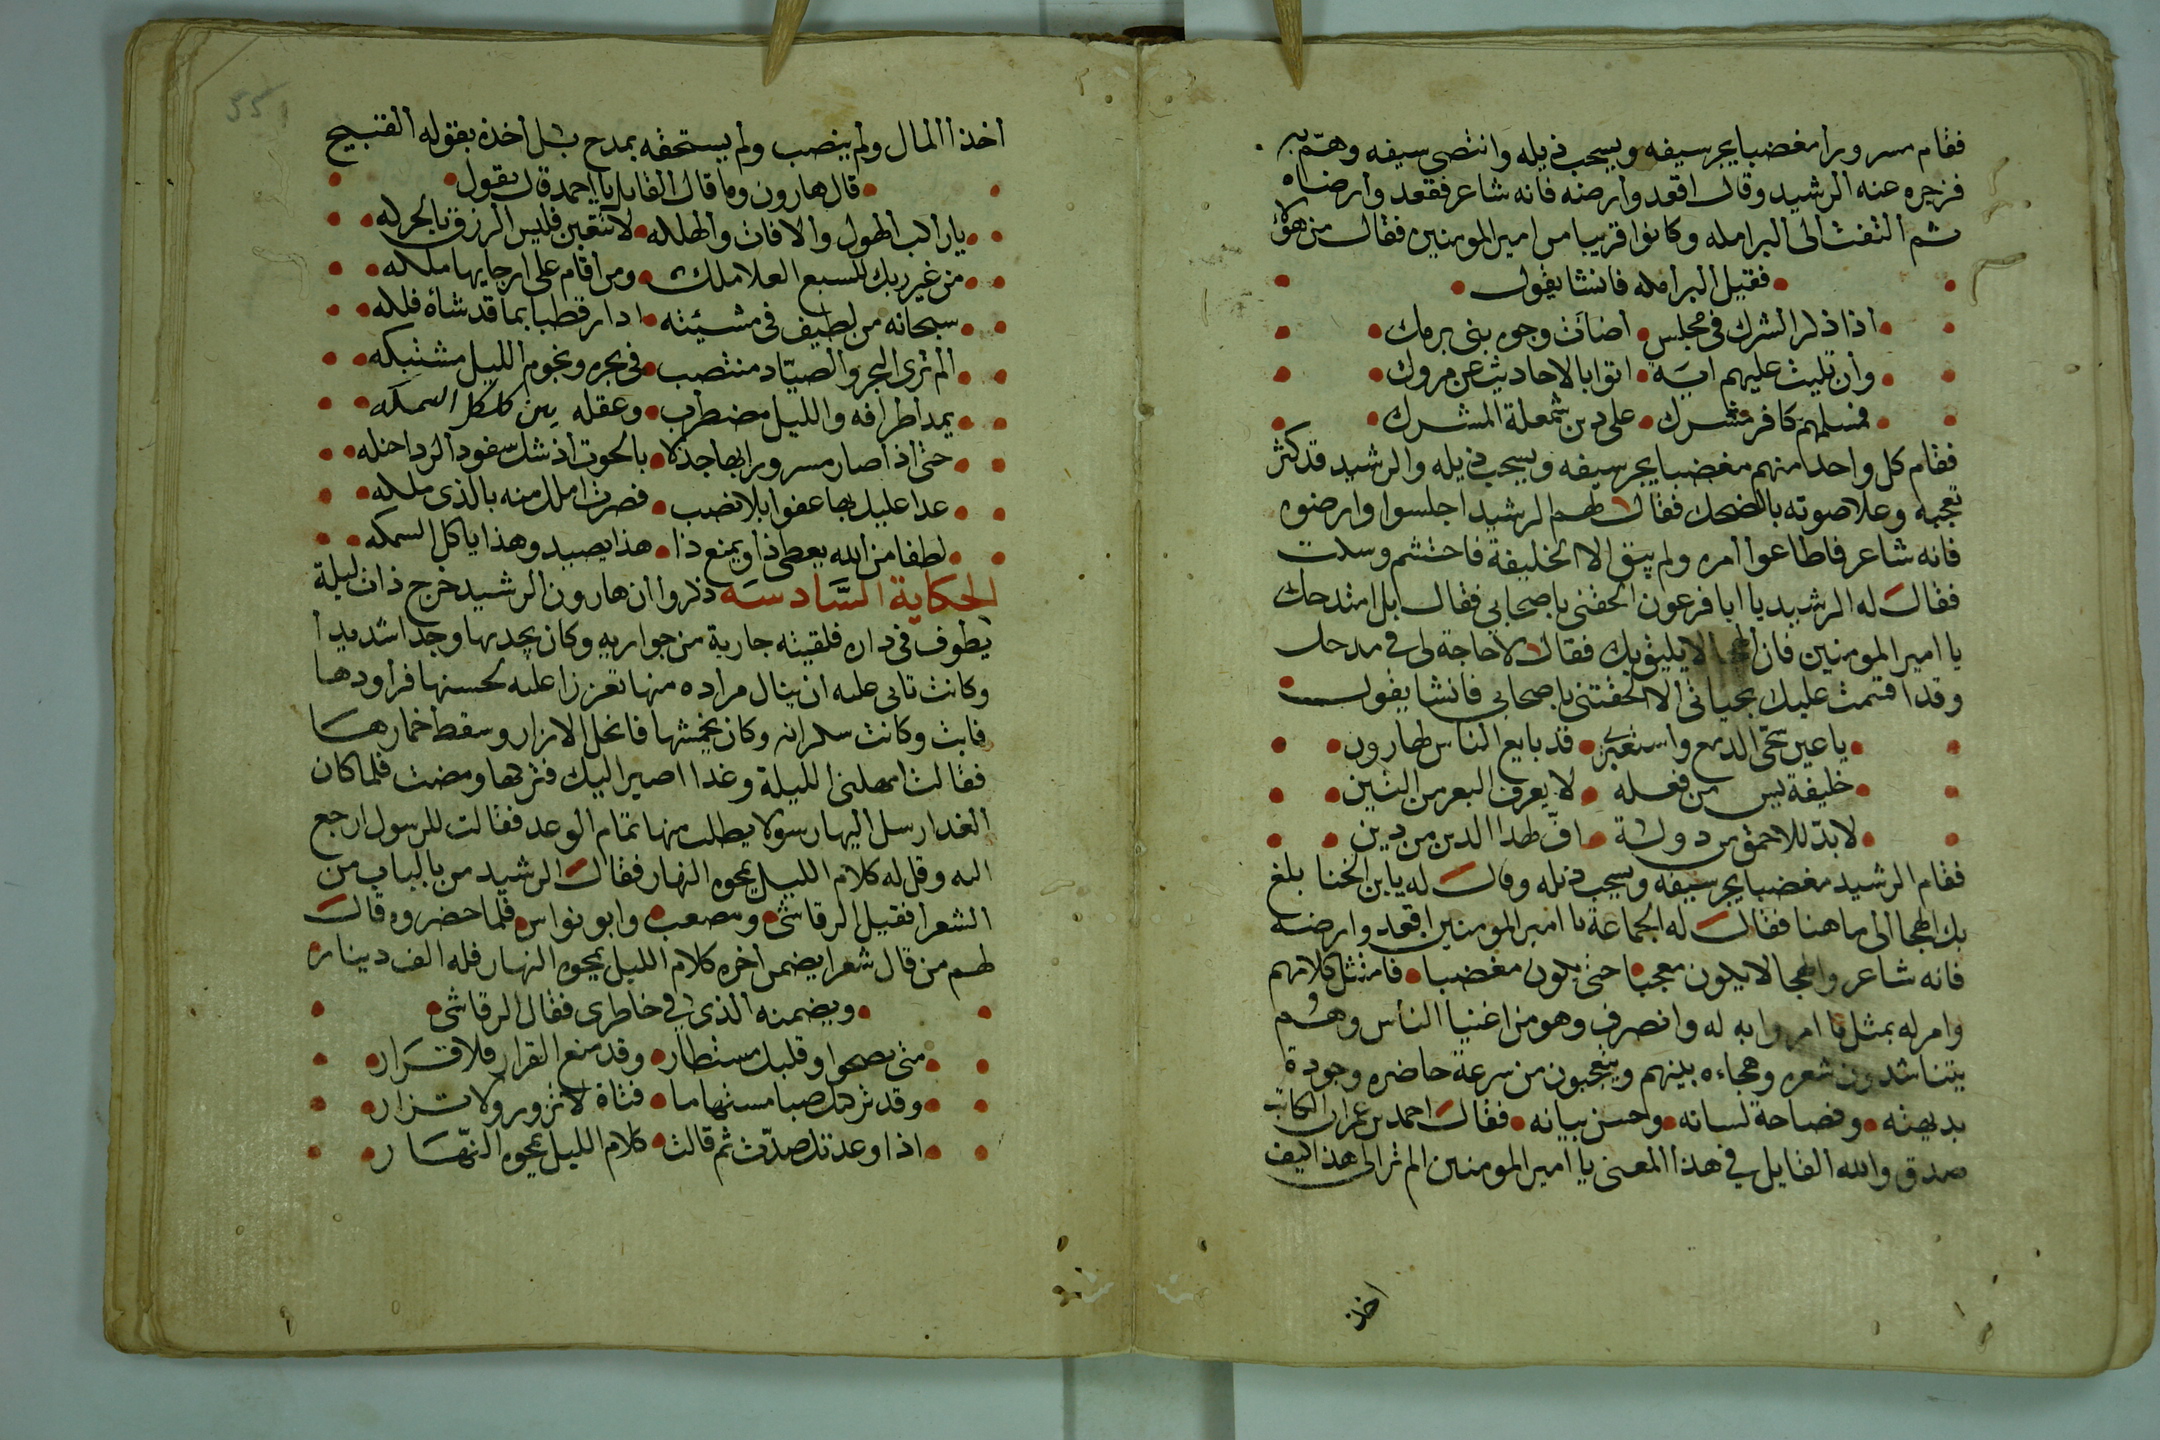 فقام مسرورا مغضبا يجر سيفه ويسحب ذيله وانتضى سيفه وهمّ به
فزجره عنه الرشيد وقال اقعد وارضه فانه شاعر فقعد وارضاه
ثم التفت الى البرامكه وكانوا قريبا من امير المومنين فقال من هؤلا
فقيل البرامكه فانشا يقول
اذا ذكر الشرك فى مجلس اضات وجوه بنى برمك
وان تليت عليهم ايه اتوا بالاحاديث عن مروك
فمسلمهم كافر مشرك على دين المشرك
فقام كل واحد منهم مغضبا يجر سيفه ويسحب ذيله والرشيد قد كثر
تعجبه وعلا صوته بالضحك فقال لهم الرشيد اجلسوا وارضوه
فانه شاعر فاطاعوا امره ولم يبق الا الخليفة فاحتشم وسكت
فقال له الرشيد يا ابا فرعون الحقنى باصحابي فقال بل امتدحك
يا امير المومنين فان الهجا لا يليق بك فقال لا حاجة لى فى مدحك
وقد اقتمت عليك بحياتى الا الحقتنى باصحابي فانشا يقول
ياعين سحّى الدمع واستعبرى قد بايع الناس لهارون
خليفة من فعله لا يعرف البعر من التين
لابدّ للاحمق من دولة افّ لهذا الدين من دين
فقام الرشيد مغضبا يجر سيفه ويسحب ذيله وقال له يا بن الخنا بلغ
بك الهجا الى ما هنا فقالت له الجماعة يا امير المومنين اقعد وارضه
فانه شاعر والهجا لا يكون معجبا حتى يكون مغضبا فامتثل كلامهم
وامر له بمثل ما امروا به له وانصرف وهو من اغنيا الناس وهم
يتناشدون شعره وهجاءه بينهم ويتعجبون من سرعة حاضره وجودة
بديهته وفصاحة لسانه وحسن بيانه فقال احمد بن عمران الكاتب
صدق والله القايل في هذا المعنى يا امير المومنين الم تر الى هذا كيف
اخذ
55
اخذ المال ولم ينصب ولم يستحقه بمدح بل اخذه بقوله القبيح
قال هارون وما قال القايل يا احمد قال يقول
يا راكب الهول والافات والهلكه لا تتعبن فليس الرزق بالحركه
من غير ربك للسبع العلا ملك ومن اقام على ارجايها ملكه
سبحانه من لطيف فى مشيئته ادار قطبا بما قد شاه فلكه
الم ترى البحر والصيّاد منتصب فى بحره ونجوم الليل مشتبكه
يمد اطرافه والليل مضطرب وعقله بين كلكل السمكه
حتى اذا صار مسرورا بها جذلا بالحوت اذ شك سفود الردا حنكه
غدا عليك بها عفوا بلا نصب فصرت املك منه بالذى ملكه
لطفا من الله يعطى ذا ويمنع ذا هذا يصيد وهذا ياكل السمكه
الحكاية السَّادسَه ذكروا ان هارون الرشيد خرج ذات ليلة
يطوف فى داره فلقيته جارية من جواريه وكان يجد بها وجدا شديدا
وكانت تابى عليه ان ينال مراده منها تعززا عليه لحسنها فراودها
فابت وكانت سكرانه وكان يخمشها فانحل الازار وسقط خمارها
فقالت امهلنى الليلة وغدا اصير اليك فتركها ومضت فلما كان
الغد ارسل اليها رسولا يطلب منها تمام الوعد فقالت للرسول ارجع
اليه وقل له كلام الليل يمحوه النهار فقال الرشيد من بالباب من
الشعرا فقيل الرقاشى ومصعب وابو نواس فلما حضروه قال
لهم من قال شعرا يضمن اخره كلام الليل يمحوه النهار فله الف دينار
ويضمنه الذى في خاطرى فقال الرقاشى
متى يصحوا وقلبك مستطار وقد منع القرار فلا قرار
وقد تركتك صبا مستهاما فتاة لا تزور ولا تزار
اذا وعدتك صدّت ثم قالت كلام الليل يمحوه النّهار